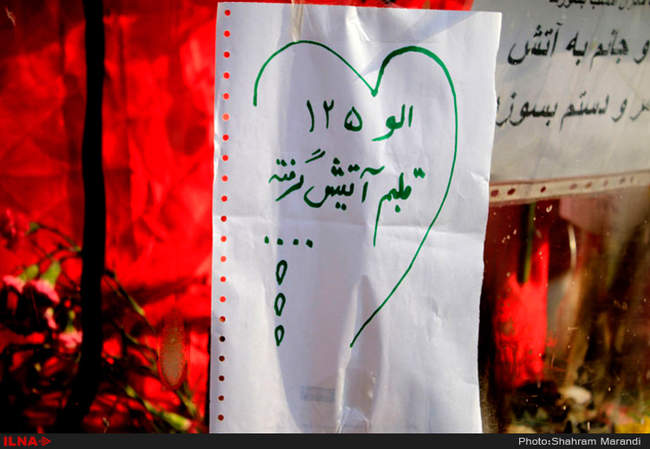 الو ۱۲۵
قلبم آتیش گرفته
....
و جانم به آتش
و دستم بسوزد
ILNA
Photo:Shahram Marandi